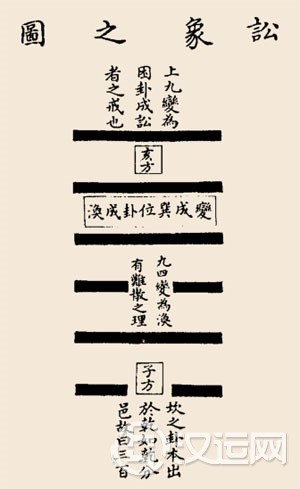 訟象之圖
上九變為
困卦成訟
者之戒也
亥方
變成巽位卦成渙
九四變為渙
有離散之理
子方
坎之卦本出
於乾如乾分
邑故曰三百
汉运网